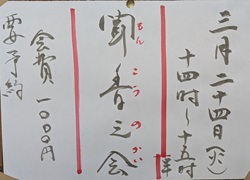 三月二十四日(火)
十四時~十五時半
聞香之会
もんこうのかい
会費 一〇〇〇円
要予約